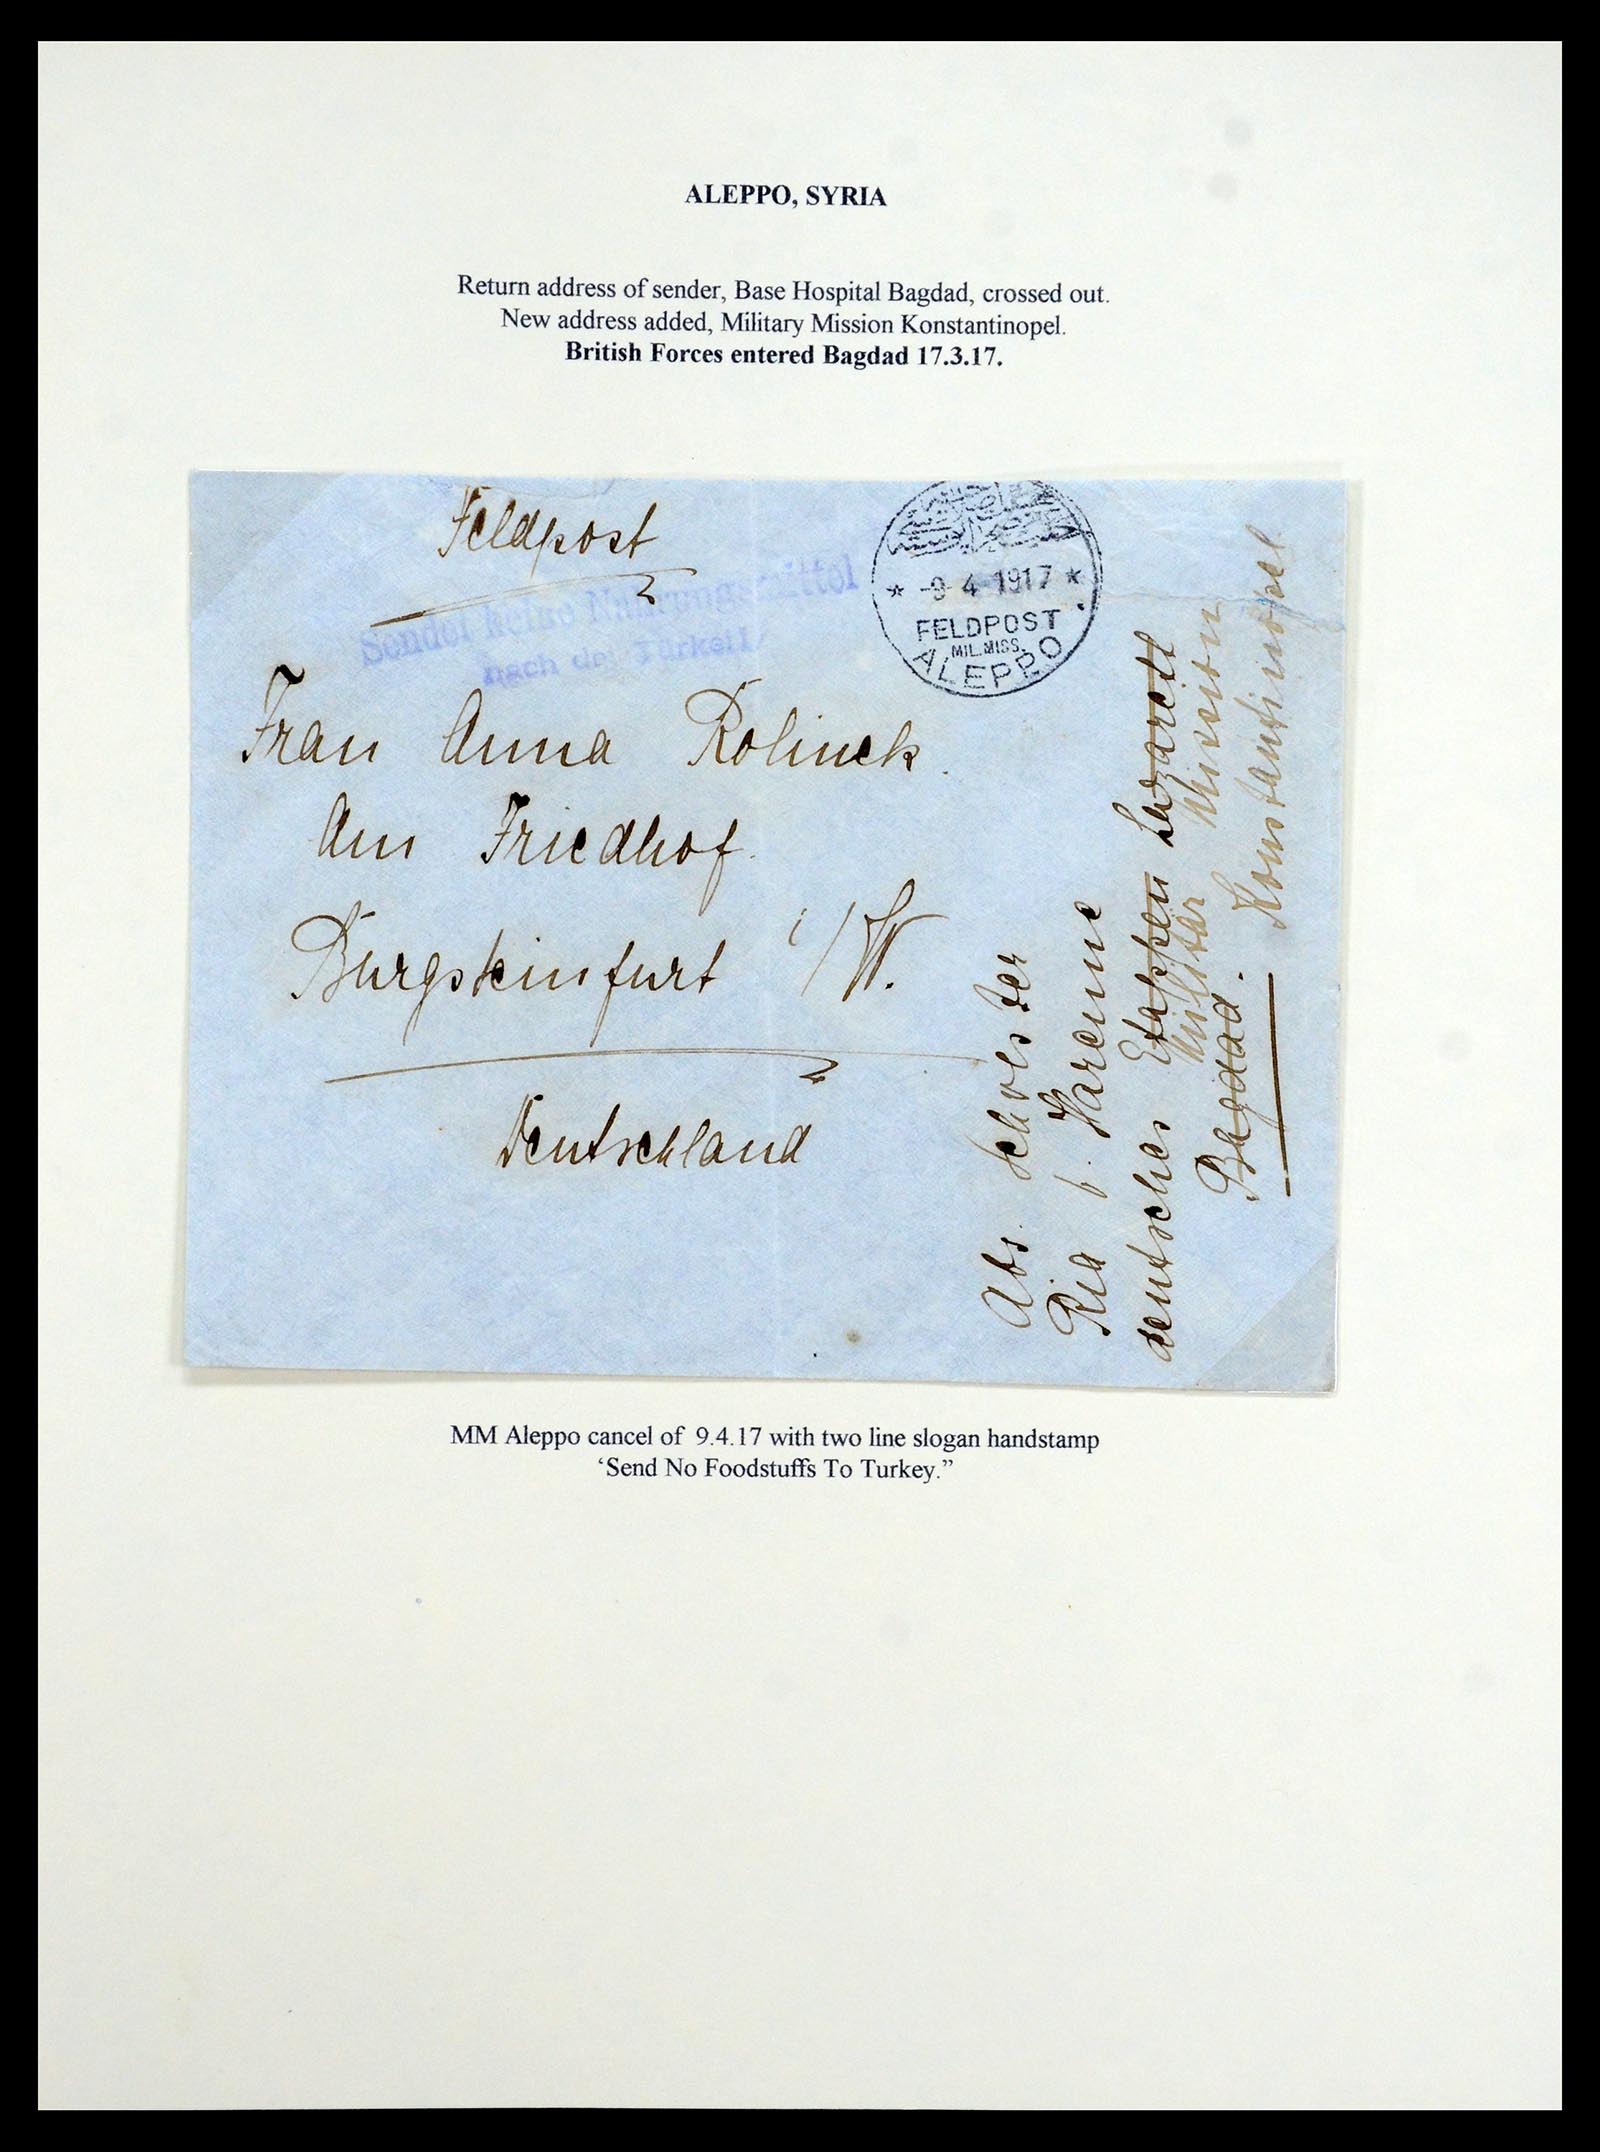 ALEPPO, SYRIA
Return address of sender, Base Hospital Bagdad, crossed out.
New address added, Military Mission Konstantinopel.
British Forces entered Bagdad 17.3.17.
Feldpost
Sendet keine Nahrungsmittel
nach der Türkei!
* -9 4 1917 *
FELDPOST
MIL.MISS.
ALEPPO
Frau Anna Rolinck
Am Friedhof
Burgsteinfurt i/W.
Deutschland
Abs. Schwester
Ria v.
deutsches Etappen Lazarett
Militär Mission
Bagdad. Konstantinopel
MM Aleppo cancel of 9.4.17 with two line slogan handstamp
‘Send No Foodstuffs To Turkey.”